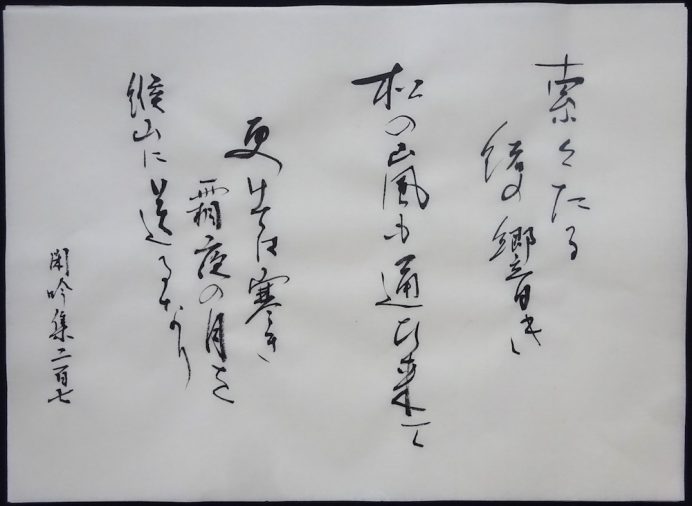 索々たる
緒の響き
松の嵐も通ひ来て
更けては寒き
霜夜の月を
緱山に送るなり
閑吟集二百七